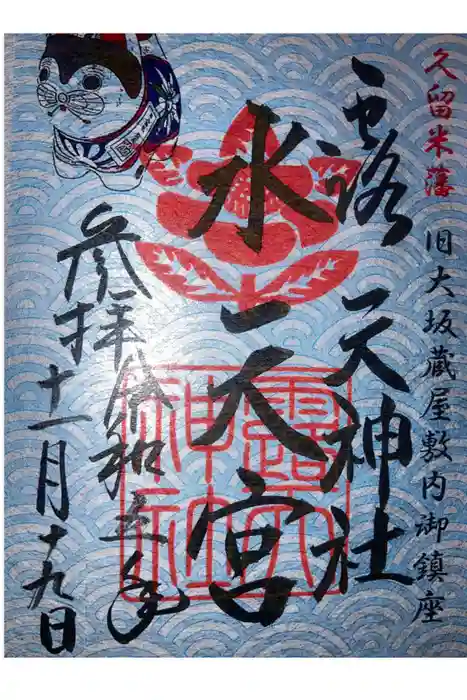 久留米藩 旧大坂蔵屋敷内御鎮座
露天神社
水天宮
参拝令和五年
十一月十九日